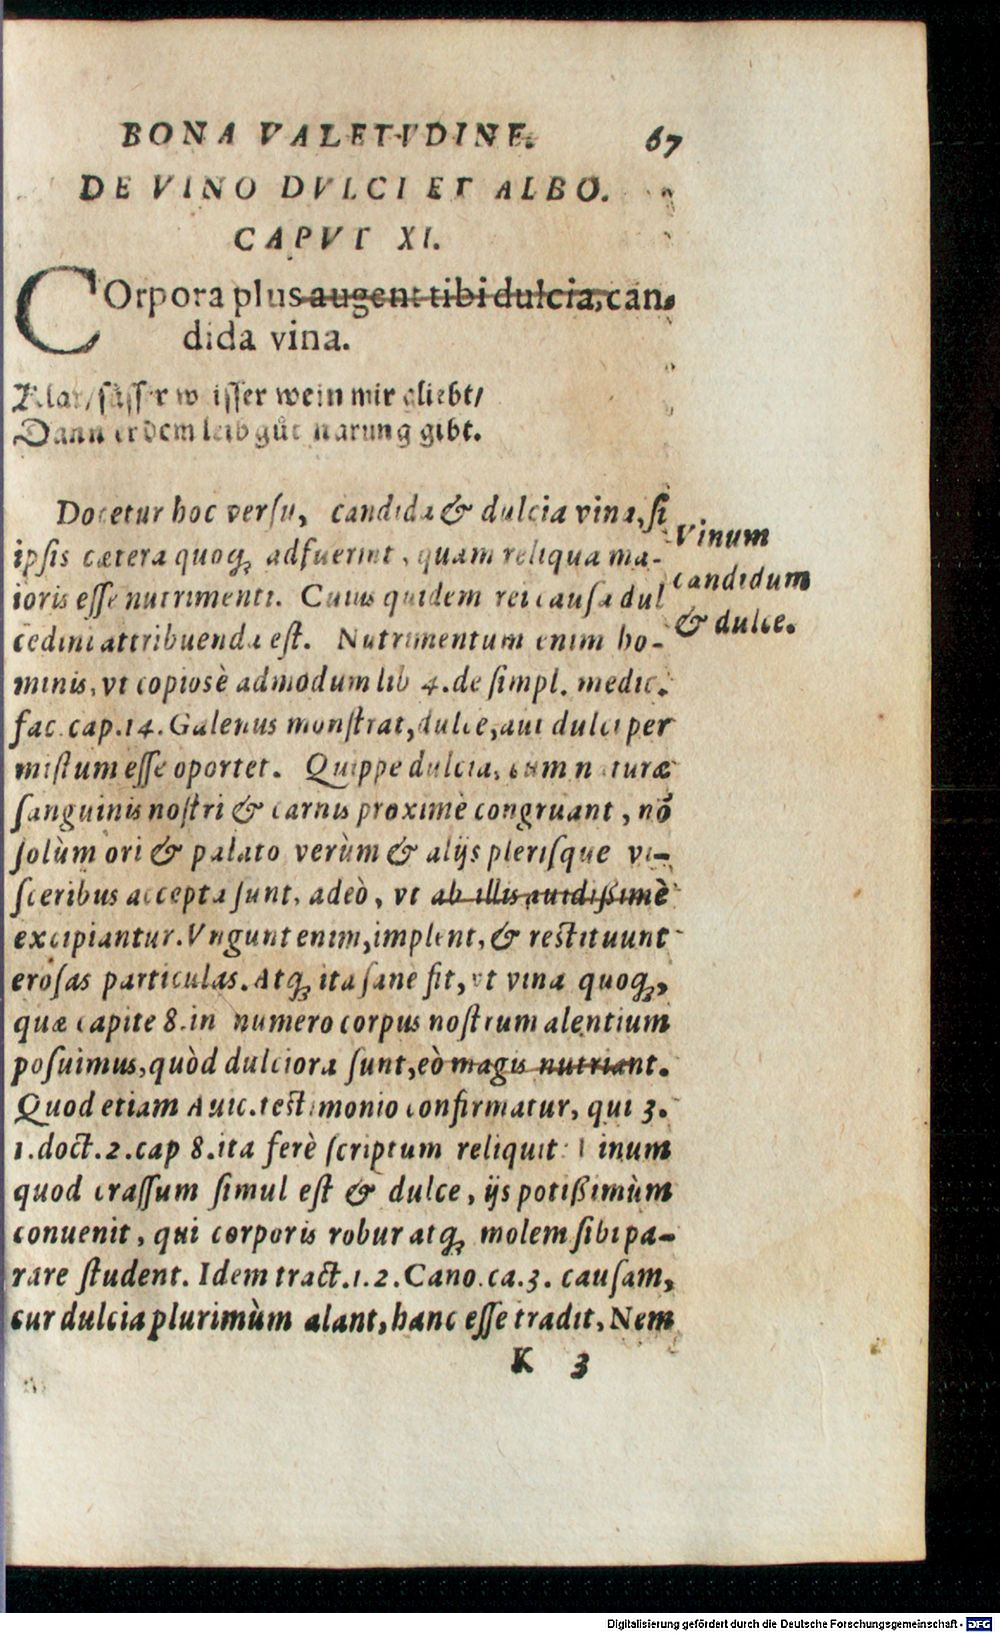 BONA VALETVDINE. 67
DE VINO DVLCI ET ALBO.
CAPVT XI.
COrpora plus augent tibi dulcia, can-
dida vina.
Klar/süsser weisser wein mir gliebt/
Dann er dem leib gůt narung gibt.
Docetur hoc versu, candida & dulcia vina, si
ipsis cætera quoq; adfuerint, quam reliqua ma-
ioris esse nutrimenti. Cuius quidem rei causa dul
cedini attribuenda est. Nutrimentum enim ho-
minis, vt copiosè admodum lib 4. de simpl. medic.
fac. cap. 14. Galenus monstrat, dulce, aut dulci per
mistum esse oportet. Quippe dulcia, cum naturæ
sanguinis nostri & carnis proximè congruant, nõ
solùm ori & palato verùm & alijs plerisque vi-
sceribus accepta sunt, adeò, vt ab illis auidißimè
excipiantur. Vngunt enim, implent, & restituunt
erosas particulas. Atq; ita sane fit, vt vina quoq;,
quæ capite 8. in numero corpus nostrum alentium
posuimus, quòd dulciora sunt, eò magis nutriant.
Quod etiam Auic. testimonio confirmatur, qui 3.
1. doct. 2. cap 8. ita ferè scriptum reliquit: Vinum
quod crassum simul est & dulce, ijs potißimùm
conuenit, qui corporis robur atq; molem sibi pa-
rare student. Idem tract. 1. 2. Cano. ca. 3. causam,
cur dulcia plurimùm alant, hanc esse tradit, Nem
K 3
Vinum
candidum
& dulce.
Digitalisierung gefördert durch die Deutsche Forschungsgemeinschaft - DFG